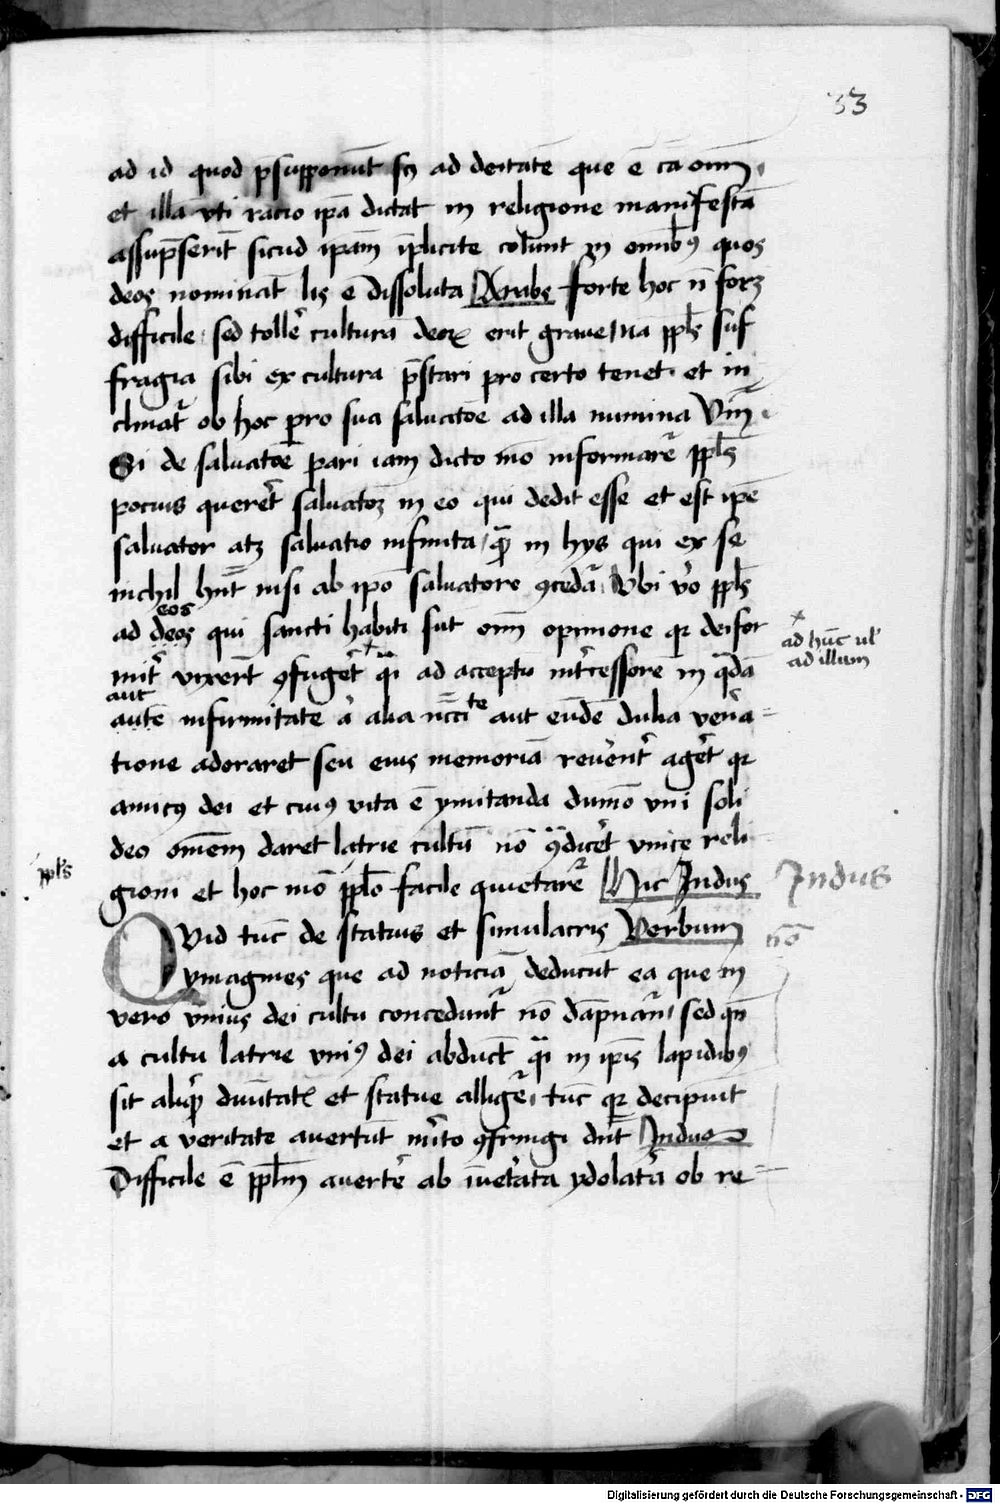 33
ad id quod p̄supponūt scꝫ ad deitatē que ē cā om̄
et illā vti racio ip̄a dictat in religione manifestā
assūpserīt sicud ip̄am īplicite colūnt in omībꝰ quos
deos nomināt lis ē dissoluta Arabs forte hoc nō foꝛꝫ
difficile sed tollē culturā deoꝝ erit graue nā ppl̄s suf
fragia sibi ex cultura p̄stari pro certo tenet et in
clinat᷑ ob hoc pro sua saluatōe ad illa numina Vm̄
Si de saluatōe pari iam dicto mō informaret᷑ ppl̄s
pocius querēt saluatoꝛē in eo qui dedit esse et est ip̄e
saluator atꝫ saluatio infinita qꝫ in hys qui ex se
nichil hn̄t nisi ab ip̄o saluatore ꝯcedat᷑ Vbi vō ppl̄s
eos
ad deos qui sancti habiti sūt om̄ opinione qꝛ deifor
ad hūc uł
ad illum
mit᷑ vixerīt ꝯfugēt q̄si ad acceptū int᷑cessorē in q̄dā
aut
autē infirmitate ā alia nccīte aut eūdē dulia ven̄a
tione adoraret seu eius memoriā reuēnt᷑ agēt qꝛ
amicꝰ dei et cuiꝰ vita ē ymitanda dūmō vni soli
deo omēm daret latrie cultū nō ꝯdicēt vnice reli
ppl̄s
gioni et hoc mō pplō facile quietaret᷑ Hic Indus
Indus
Qvid tūc de statuis et simulacris Verbum
ymagines que ad noticiā deducūt ea que in
vero vnius dei cultu concedunt᷑ nō dāpnant᷑ sed qn̄
a cultu latrie vniꝰ dei abducūt q̄si in ip̄is lapidibꝰ
sit aliqd diuītatꝭ et statue alliget᷑ tūc qꝛ decipiūt
et a veritate auertūt m̄ito ꝯfringi dn̄t Indus
Difficile ē pplm̄ auertē ab īuet᷑ata ydolat᷑a ob re
Digitalisierung gefördert durch die Deutsche Forschungsgemeinschaft - DFG